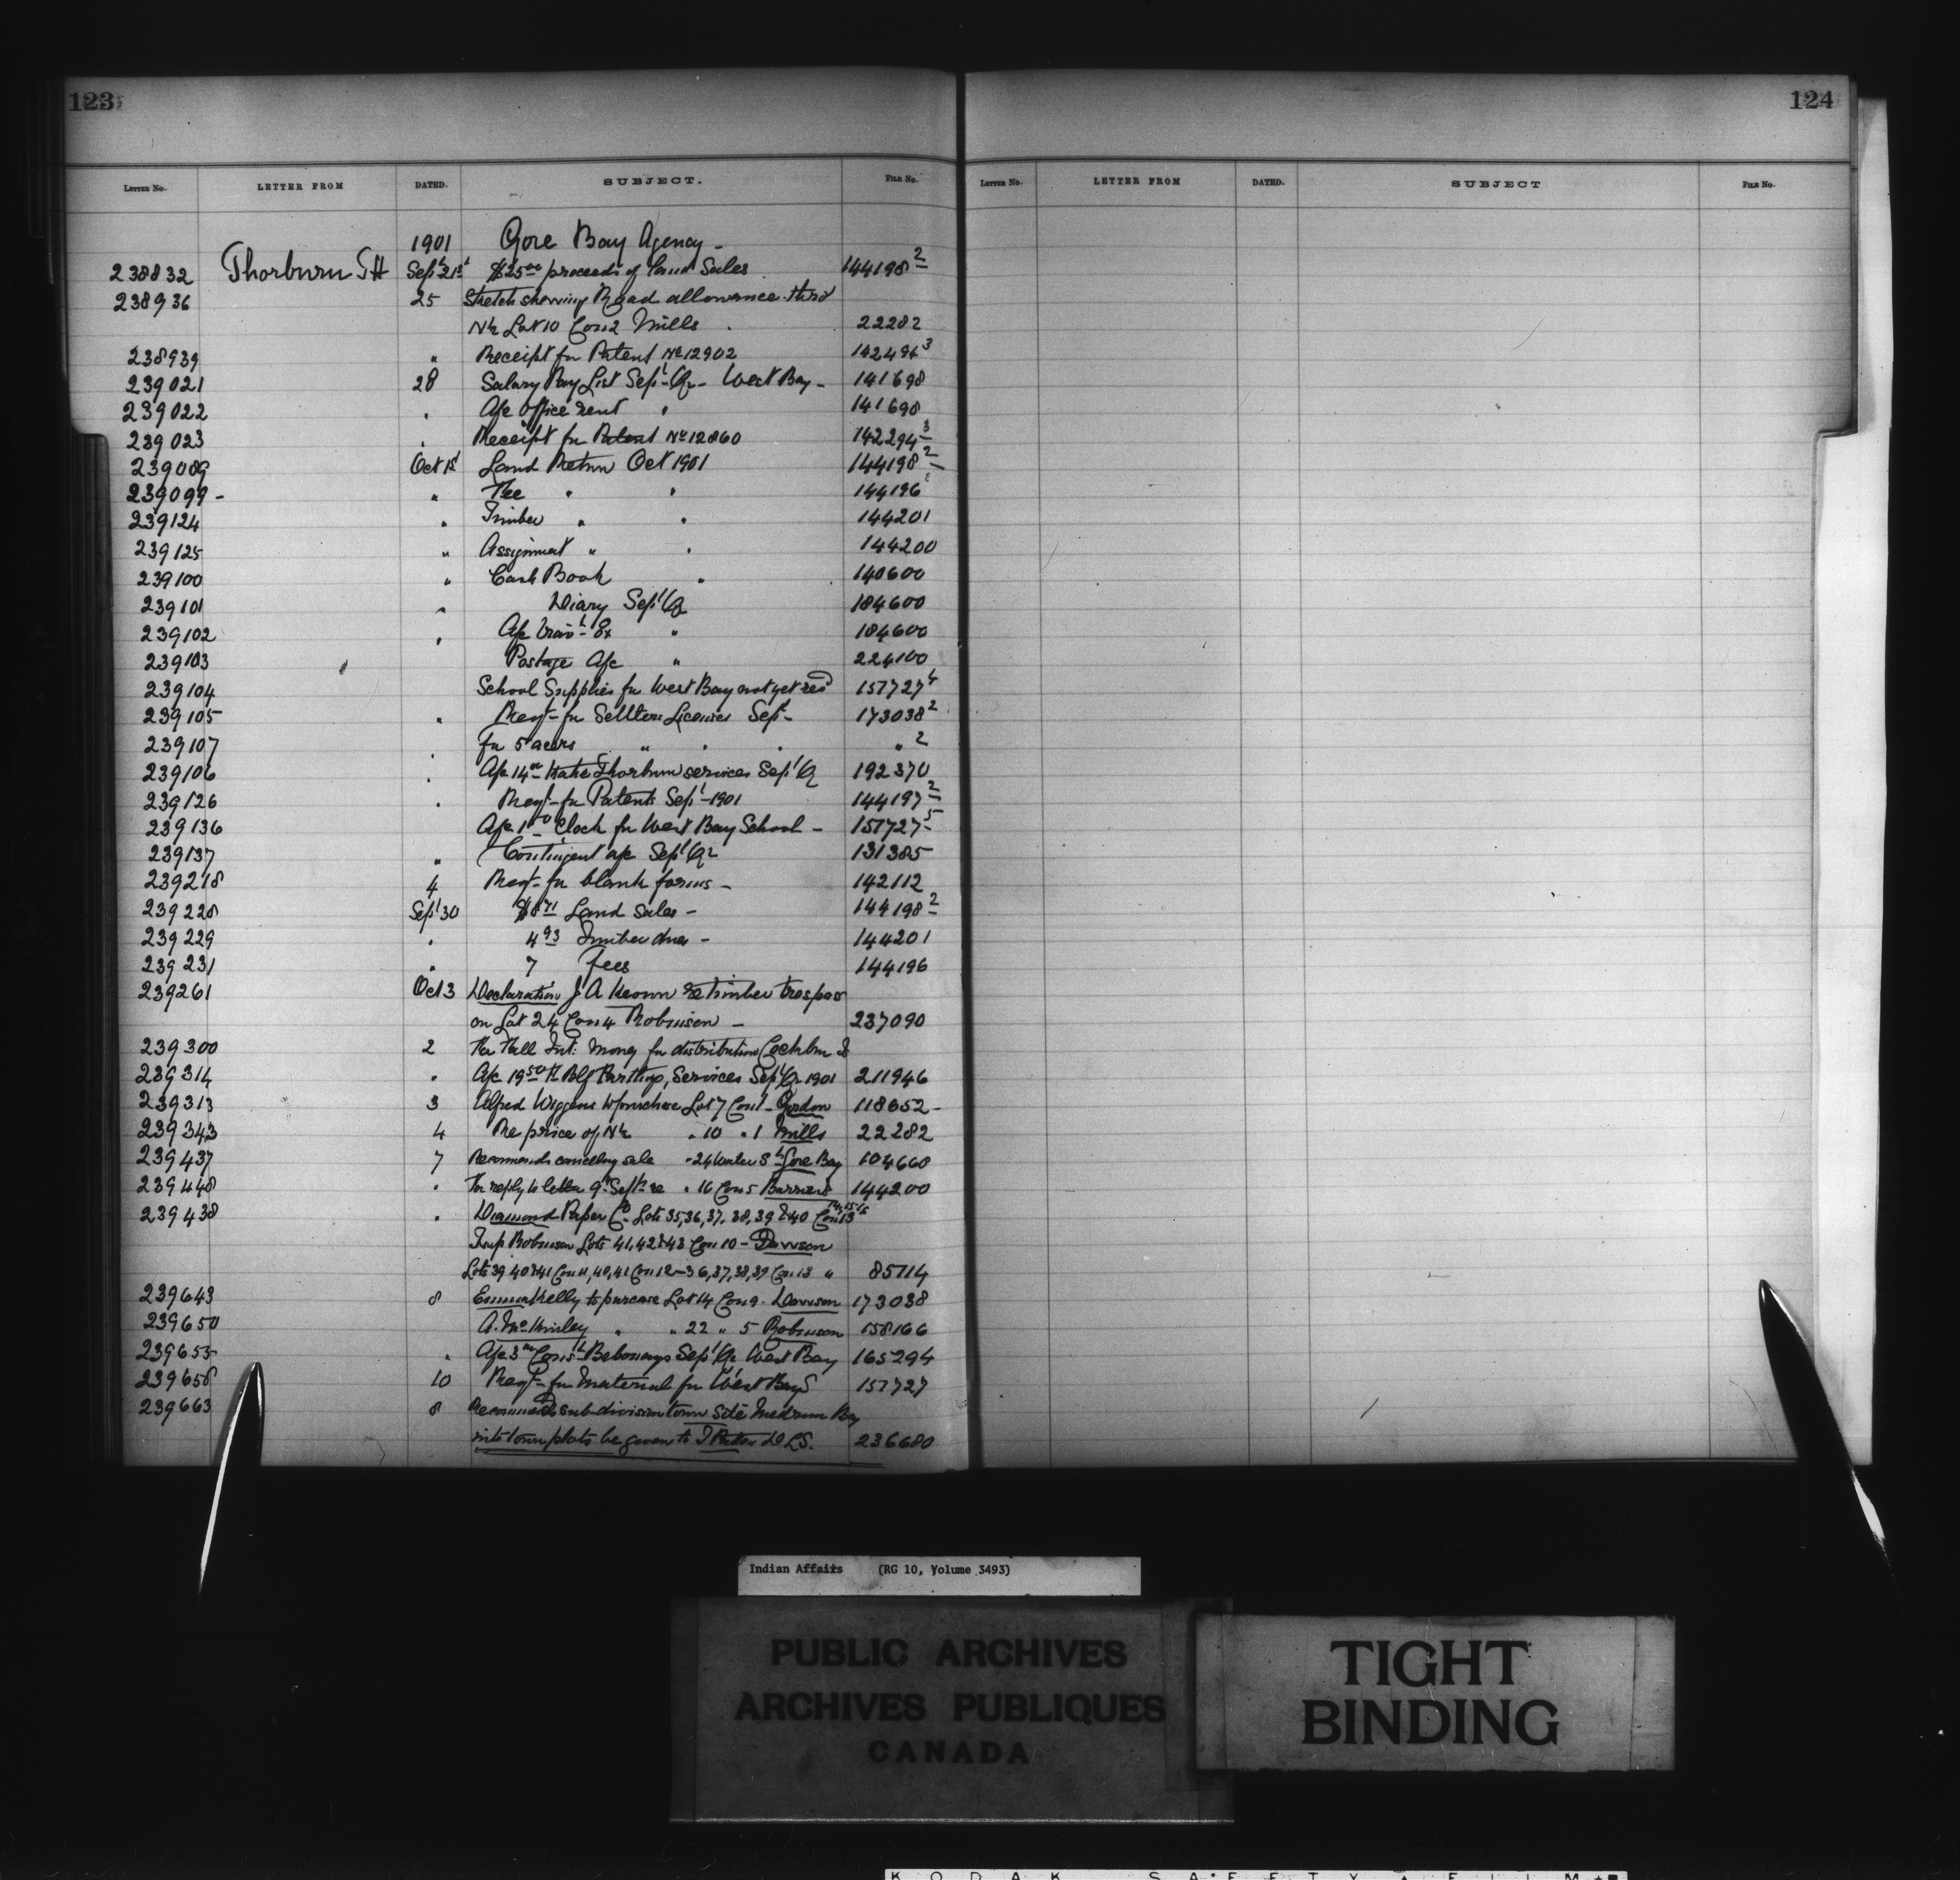 123
124
LETTER NO. LETTER FROM DATED. SUBJECT. FILE NO.
LETTER NO. LETTER FROM DATED. SUBJECT FILE NO.
1901 Gore Bay Agency -
238832 Thorburn Sept 21st $25 00 proceeds of Land Sales 144198 2
238936 25 Sketch showing Road allowance thro'
N½ Lot 10 Con 2 Mills 22282
238939 " Receipt for Patent No 12902 142494 3
239021 28 Salary Pay List Sept Qr - West Bay - 141698
239022 " A/c Office rent " 141698
239023 " Receipt for Patent No 12860 142294 3
239089 Oct 1st Land Return Oct 1901 144198 2
239099 - " Fee " " 144196
239124 " Timber " " 144201
239125 " Assignment " " 144200
239100 " Cash Book " 140600
239101 " Diary Sept Qr 184600
239102 " A/c Trav Ex " 184600
239103 Postage A/c " 224100
239104 School Supplies for West Bay not yet recd 157727 4
239105 " Reqt - for Settlers Licenses Sept - 173038 2
239107 " for 5 acres " " " " 2
239106 " A/c 14 00 Katie Thorburn services Sept Qr 192370
239126 " Reqt - for Patents Sept - 1901 144197 2
239136 A/c 1 50 Clock for West Bay School - 157727 5
239137 " Contingent a/c Sept Qr 131385
239218 4 Reqt - for blank forms - 142112
239228 Sept 30 $8 71 Land Sales - 144198 2
239229 " 4 93 Timber dues - 144201
239231 " 7 Fees 144196
239261 Oct 3 Declaration J A Keown re timber trespass
on Lot 24 Con 4 Robinson - 237090
239300 2 Int: Money for distribution Cockburn Is
239314 " A/c 19 50 Services Sept Qr 1901 211946
239313 3 Alfred Wiggins to purchase Lot 7 Con 1 - Gordon 118652 -
239343 4 Re price of N½ " 10 " 1 Mills 22282
239437 7 Recommends canceling sale " 24 Water St Gore Bay 104660
239448 " For reply to letter 9th Sept re " 16 Con 5 144200
239438 " Diamond Paper Co. Lots 35,36,37,38,39 & 40 Con 13 14,15 16
Twp Robinson Lots 41,42 & 43 Con 10 - Dawson
Lots 39 40 & 41 Con 11, 40, 41 Con 12 - 36,37,38,39 Con 13 " 85114
239643 8 Emma Kelly to purcase Lot 14 Con 9 - Dawson 173038
239650 A. McKinley " " 22 " 5 Robinson 158166
239655 " A/c 3 00 Sept Qr West Bay 165294
239658 10 Reqt - for Material for West Bay S 157727
239663 8 Recommends sub-division town site Bay
into town plots be given to T D L S. 236680
Indian Affairs (RG 10, Volume 3493)
PUBLIC ARCHIVES
ARCHIVES PUBLIQUES
CANADA
TIGHT
BINDING
KODAK SAFETY FILM